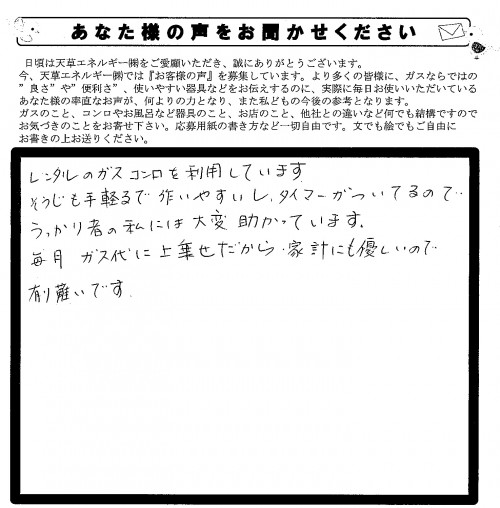 あなた様の声をお聞かせください
日頃は天草エネルギー㈱をご愛顧いただき、誠にありがとうございます。
今、天草エネルギー㈱では『お客様の声』を募集しています。より多くの皆様に、ガスならではの
”良さ”や”便利さ”、使いやすい器具などをお伝えするのに、実際に毎日お使いいただいている
あなた様の率直なお声が、何よりの力となり、また私どもの今後の参考となります。
ガスのこと、コンロやお風呂など器具のこと、お店のこと、他社との違いなど何でも結構ですので
お気づきのことをお寄せ下さい。応募用紙の書き方など一切自由です。文でも絵でもご自由に
お書きの上お送りください。
レンタルのガスコンロを利用しています
そうじも手軽るで作いやすいし、タイマーがついてるので
うっかり者の私には大変助かっています。
毎月 ガス代に上乗せだから、家計にも優しいので
有り難いです